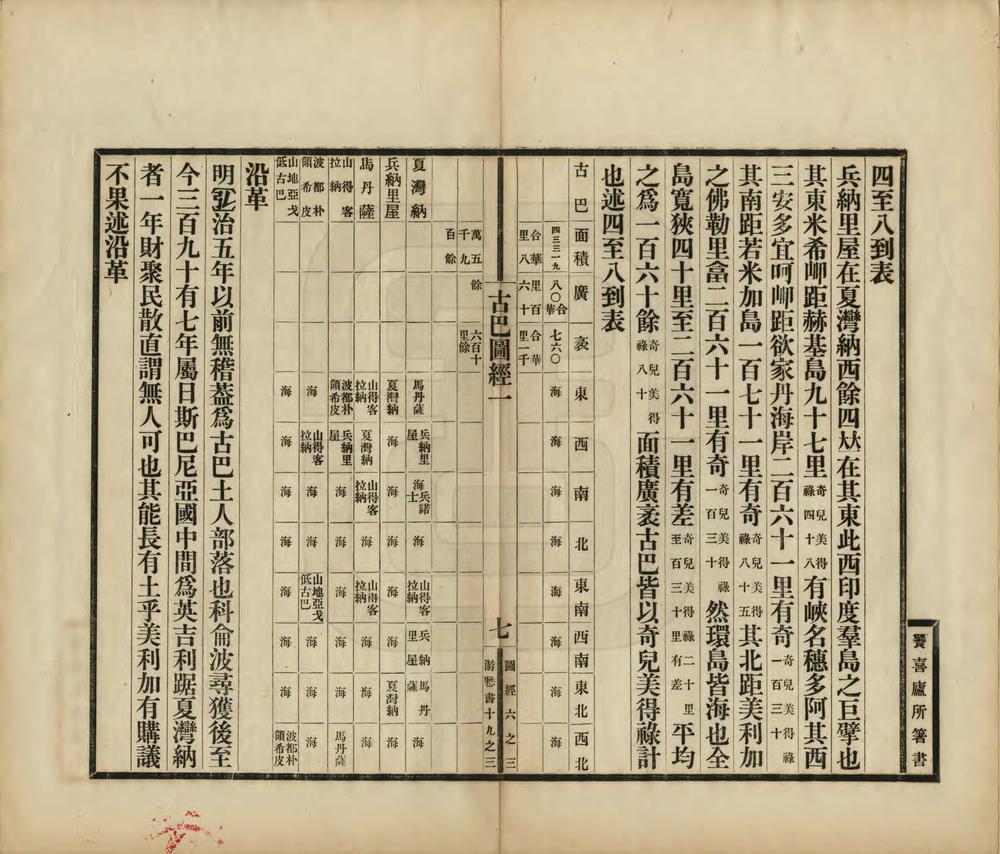 四至八到表
兵納里屋在夏灣納西餘四𠀤在其東此西印度羣島之巨擘也
其東米希岬距赫基島九十七里奇兒美得祿四十八有峽名穗多阿其西
三安多宜呵岬距欲家丹海岸二百六十一里有奇奇兒美得祿一百三十
其南距若米加島一百七十一里有奇奇兒美得祿八十五其北距美利加
之佛勒里畣二百六十一里有奇奇兒美得祿一百三十然環島皆海也全
島寬狹四十里至二百六十一里有差奇兒美得祿二十里至百三十里有差平均
之爲一百六十餘奇兒美得祿八十面積廣袤古巴皆以奇兒美得祿計
也述四至八到表
古巴 面積 廣 袤 東 西 南 北 東南 西南 東北 西北
四三三一九合華里八萬五千九百餘 八〇合華里百六十餘 七六〇合華里一千六百十里餘 海 海 海 海 海 海 海 海
夏灣納 馬丹薩 兵納里屋 海兵諾士 海 山得客拉納 兵納里屋 馬丹薩 海
兵納里屋 夏灣納 海 海 海 海 海 夏灣納 海
馬丹薩 山得客拉納 夏灣納 山得客拉納 海 山得客拉納 海 海 海
山得客拉納 波都朴領希皮 兵納里屋 海 海 海 海 海 馬丹薩
波都朴領希皮 海 山得客拉納 海 海 山地亞戈低古巴 海 海 海
山地亞戈低古巴 海 海 海 海 海 海 海 波都朴領希皮
沿革
明弘治五年以前無稽蓋爲古巴土人部落也科侖波尋獲後至
今三百九十有七年屬日斯巴尼亞國中間爲英吉利踞夏灣納
者一年財聚民散直謂無人可也其能長有土乎美利加有購議
不果述沿革
古巴圖經一
七
圖經六之三
游歷書十九之三
籑喜廬所箸書